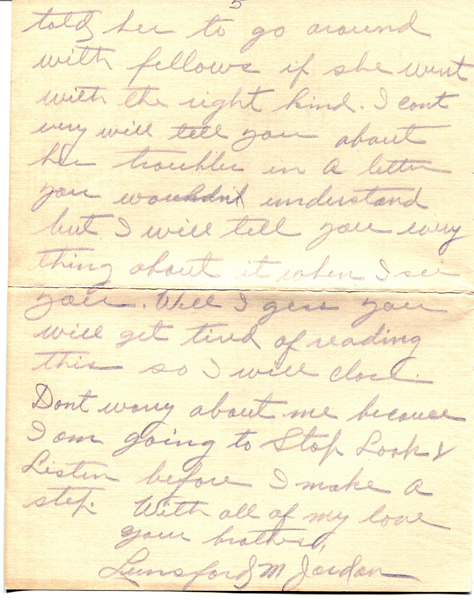 5
told her to go around
with fellows if she went
with the right kind. I cant
very will tell you about
her troubles in a letter
you wouldn't understand
but I will tell you every
thing about it when I see
you. Well I gess you
will get tired of reading
this so I will close.
Dont worry about me because
I am going to Stop Look &
Listen before I make a
step. With all of my love
your brother,
Lunsford M Jordan